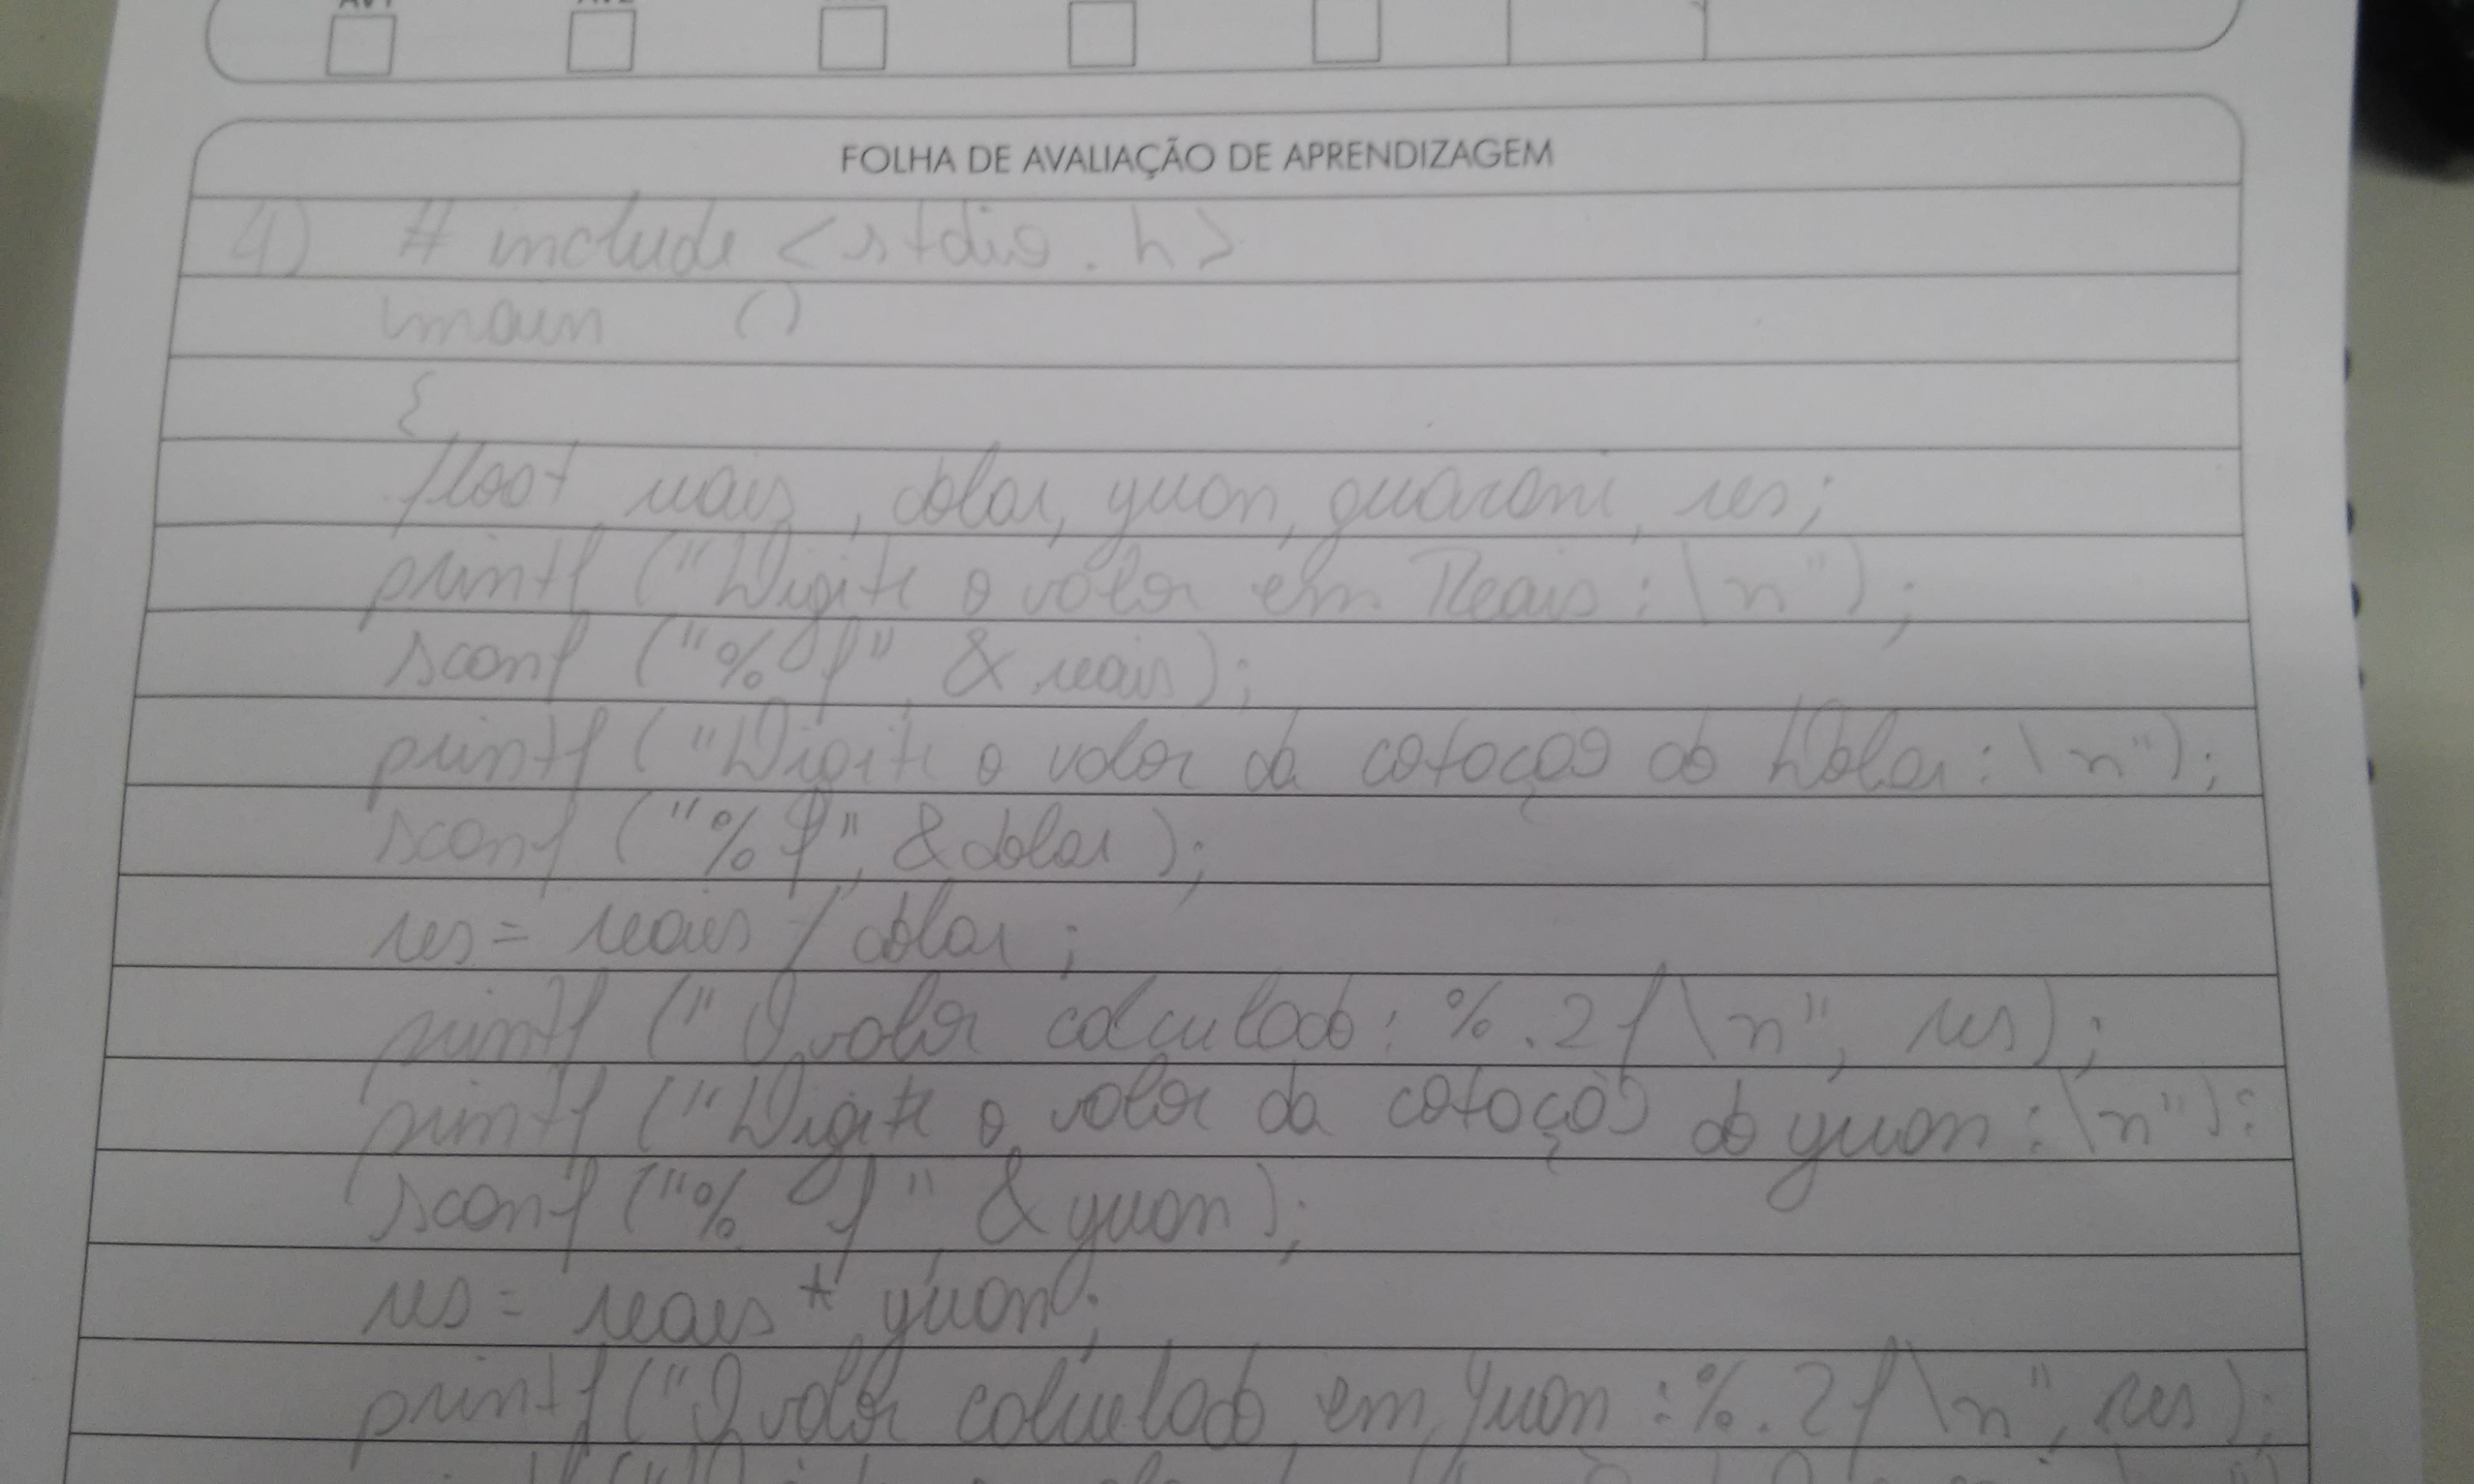 FOLHA DE AVALIAÇÃO DE APRENDIZAGEM
1) # include <stdio.h>
main ()
{
float reais, dolar, yuan, guarani, res;
printf ("Digite o valor em Reais: \n");
scanf ("%f" & reais);
printf ("Digite o valor da cotação do Dólar: \n");
scanf ("%f" & dolar);
res = reais / dolar;
printf ("O valor calculado: %.2f \n", res);
printf ("Digite o valor da cotação do yuan: \n");
scanf ("%f" & yuan);
res = reais * yuan;
printf ("O valor calculado em yuan: %.2f \n", res);